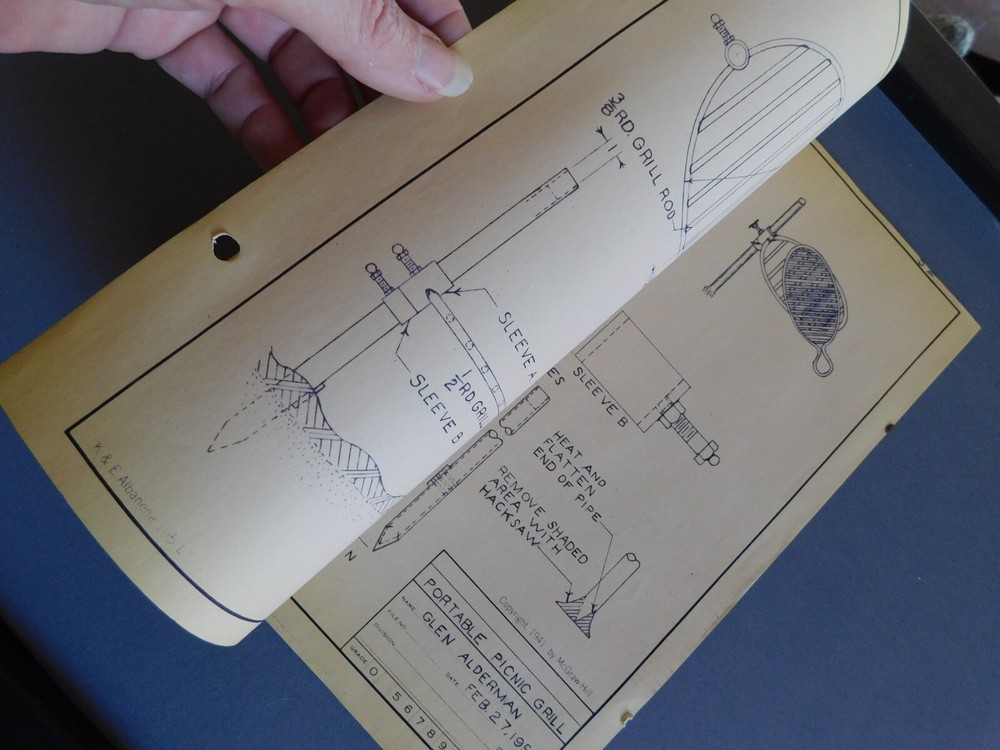 3/8 RD. GRILL ROD
1
SLEEVE A
1/2 RD. GRIL
SLEEVE B
"K & E Albanene
ES
SLEEVE B
HEAT AND
FLATTEN
END OF PIPE
REMOVE SHADED
AREA WITH
HACKSAW
N
Copyright, 1941, by McGraw-Hill
PORTABLE PICNIC GRILL
NAME GLEN ALDERMAN
FILE NO. DATE FEB. 27, 195
DIVISION
GRADE 0 5 6 7 8 9